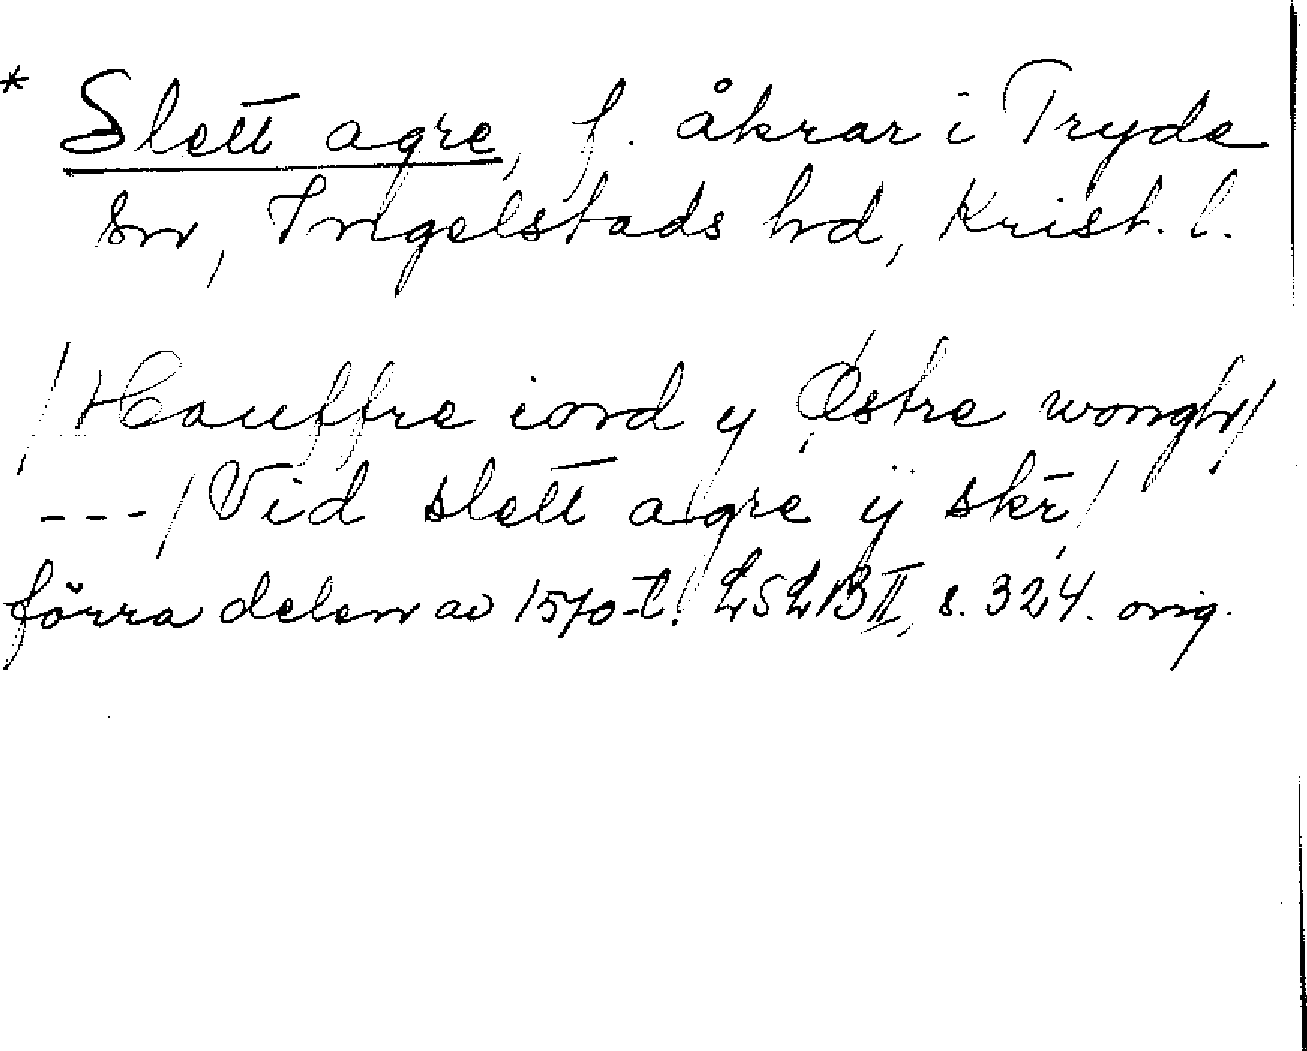 * Slett agre, f. åkrar i Tryde
sn, Ingelstads hd, Krist. l.
/Hauffre iord y Østre wongh/
---/Vid slett agre ÿ skr/
förra delen av 1570-t. LSLB II, s. 324. orig.